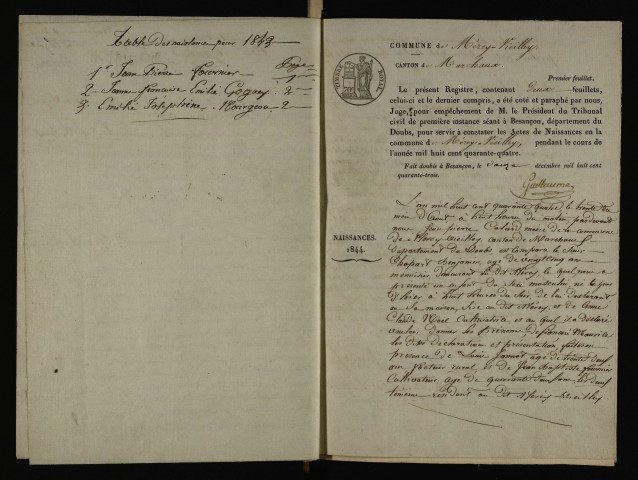 Table des naissances pour 1843
Page
1º Jean Pierre Fournier 1
2 - Jeanne françoise Emilie 2
3. Emilie Joséphine 2
COMMUNE de Mérey-Vieilley.
CANTON de Marchaux.
TIMBRE ROYAL
Premier feuillet.
Le présent Registre, contenant deux feuillets,
celui-ci et le dernier compris, a été coté et paraphé par nous,
Juge, pour empêchement de M. le Président du Tribunal
civil de première instance séant à Besançon, département du
Doubs, pour servir à constater les Actes de Naissances en la
commune de Mérey-Vieilley, pendant le cours de
l'année mil huit cent quarante-quatre.
Fait double à Besançon, le onze décembre mil huit cent
quarante-trois.
Guillaume
NAISSANCES.
1844.
L'an mil huit cent quarante quatre, le trente du
mois d'Aout à huit heures du matin, pardevant
nous Jean pierre maire de la commune
de Mérey-vieilley Canton de Marchaux
département du Doubs est comparu le Sieur
Benjamin, age de ans
menuisier demeurant au dit Mérey, le quel nous a
présenté un enfant du Sexe masculin, né le jour
d'hier à huit heures du Soir de lui déclarant
en Sa maison, Sise au dit Mérey, et de
Claude Cultivatrice, et au quel il a déclaré
vouloir donner les Prénoms De françois Maurice
les dites déclaration et présentation faites en
présence de Louis age de trente
ans facteur rural, et de Jean Baptiste Fournier
Cultivateur age de quarante ans les deux
temoins résidant au dit Mérey-Vieilley